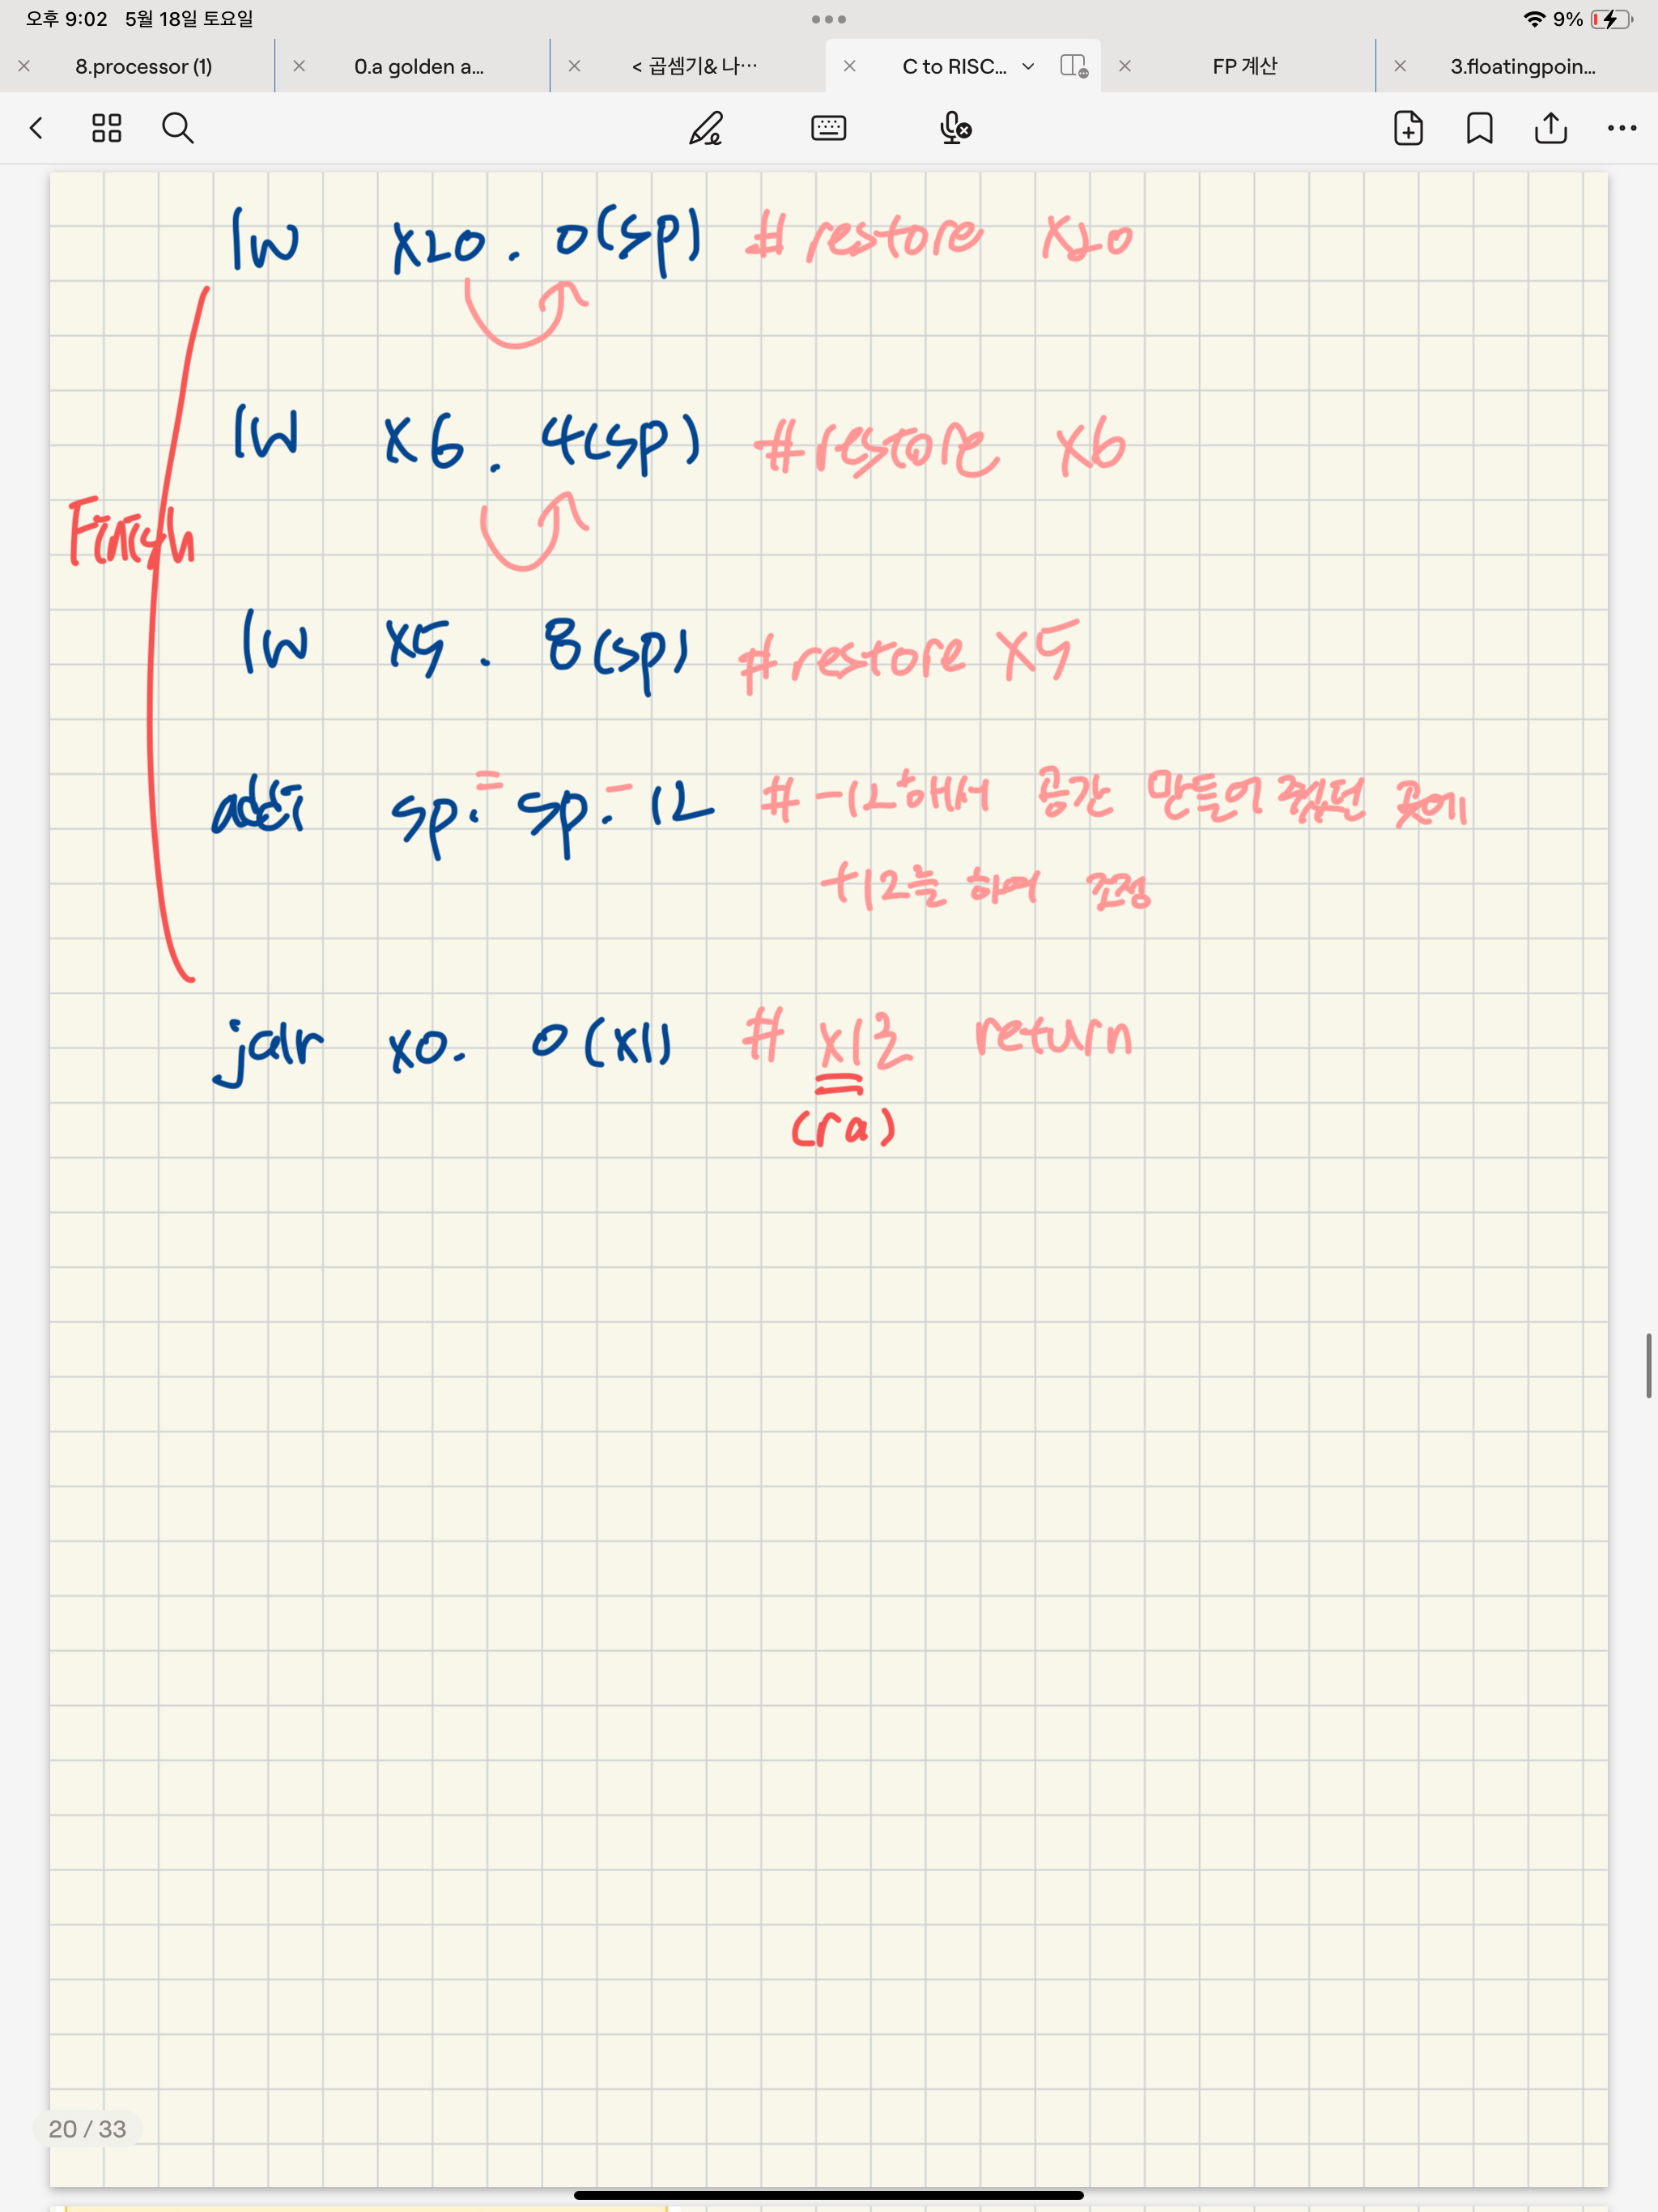 오후 9:02 5월 18일 토요일 9%
8.processor (1) 0.a golden a... < 곱셈기& 나… C to RISC... FP 계산 3.floatingpoin...
lw x20. 0(sp) # restore x20
lw x6. 4(sp) # restore x6
Finish
lw x5. 8(sp) # restore x5
addi sp. = sp. - 12 # -12해서 공간 만들어 줬던 곳에
+12를 하여 조정
jalr x0. 0(x1) # x1로 return
(ra)
20 / 33